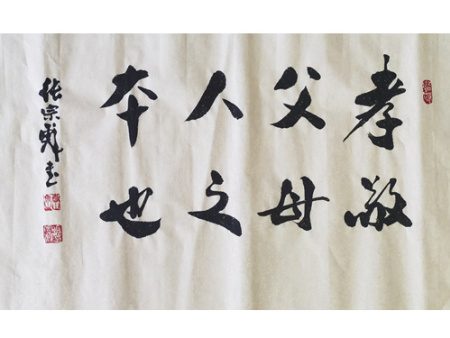 孝敬
父母
人之
本也
张宗彪书